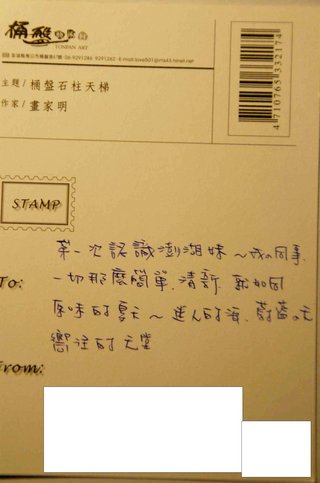 桶盤
TONPAN ART
主題/桶盤石柱天梯
作家/畫家明
4710765332174
STAMP
第一次認識澎湖妹~我の同事
To:
一切那麼簡單.清新 就如同
原味的夏天~迷人的海.蔚藍の天
嚮往的天堂
From: